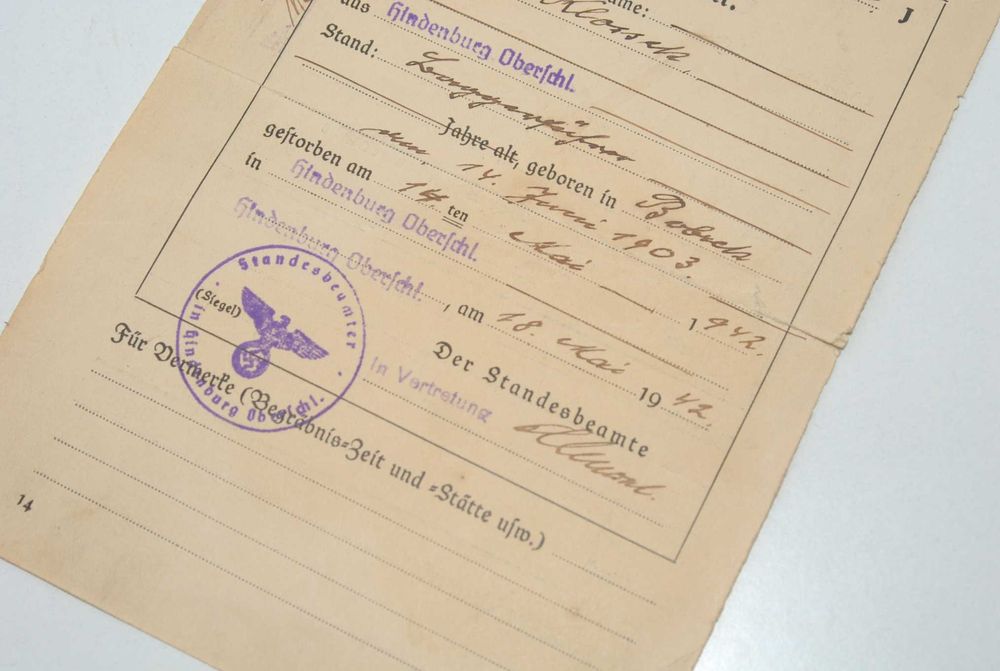 ame:
J
aus Hindenburg Oberschl.
Stand: Baggerführer
Jahre alt, geboren in
am 14. Juni 1903.
gestorben am 14 ten Mai 1942.
in Hindenburg Oberschl.
Hindenburg Oberschl., am 18. Mai 1942.
(Siegel)
Standesbeamter
in Hindenburg Oberschl.
Der Standesbeamte
In Vertretung
Für Vermerke (Begräbnis-Zeit und -Stätte usw.)
14